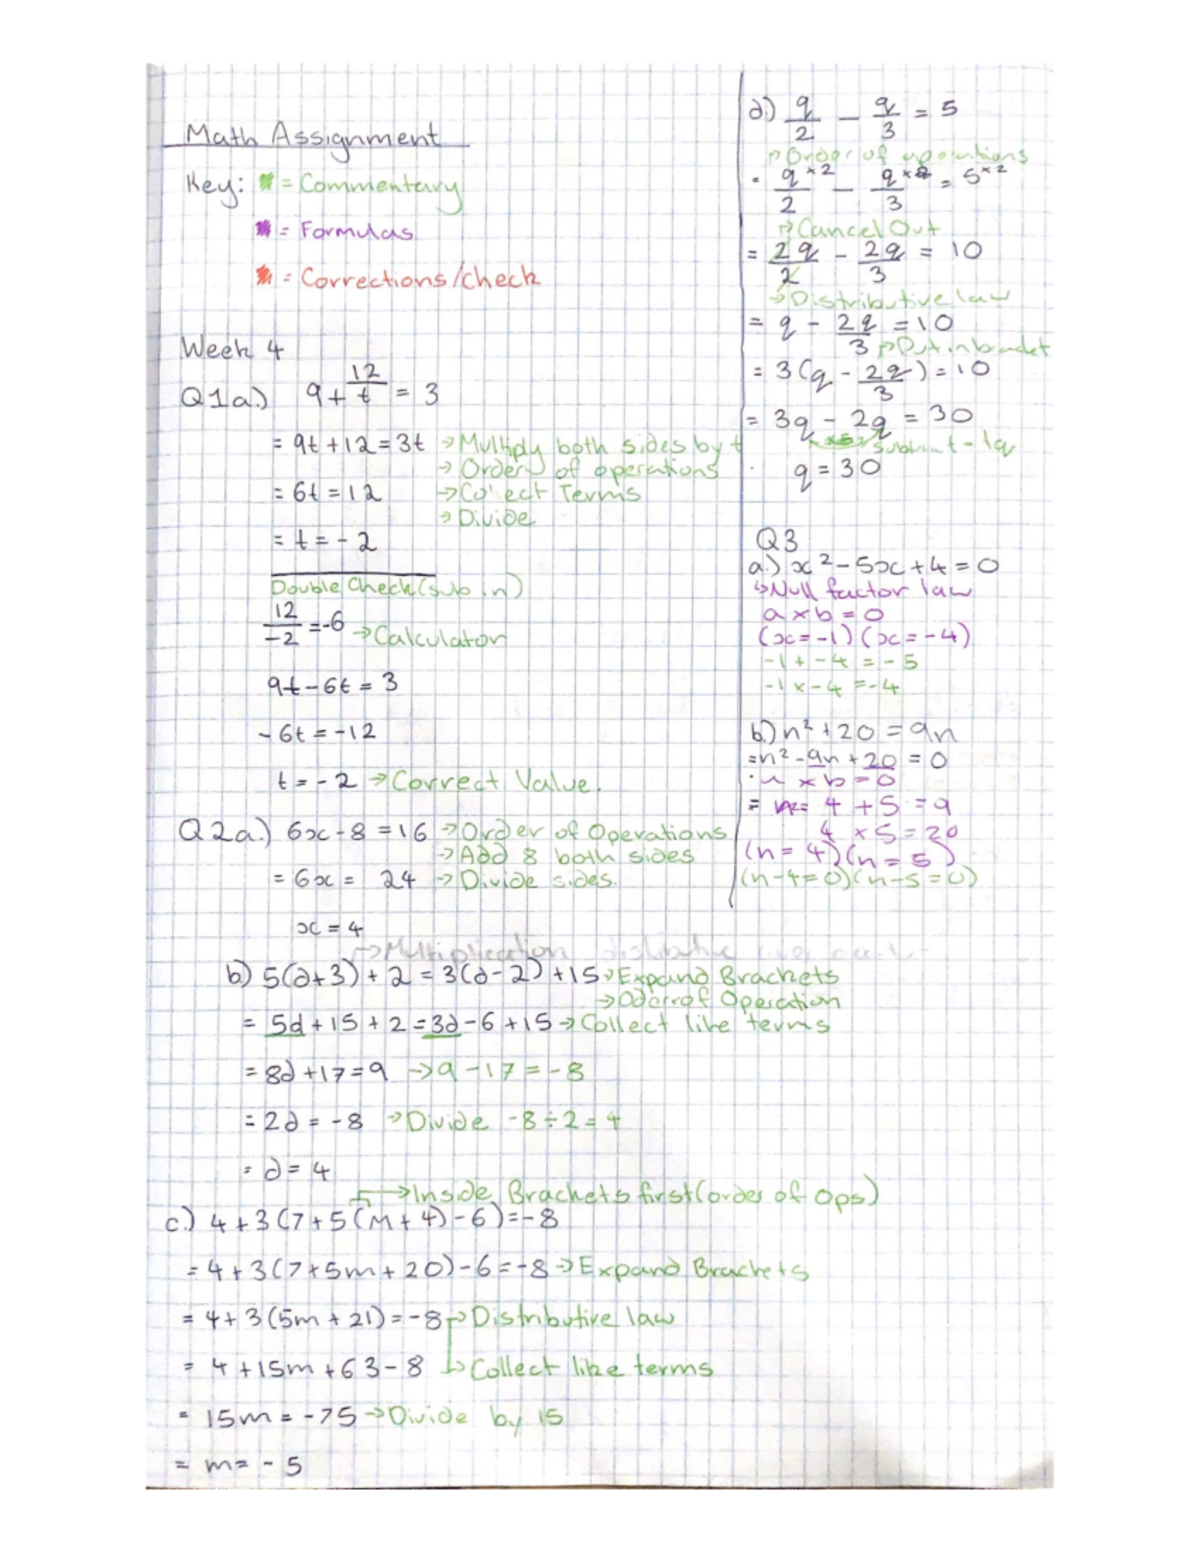 Math Assignment
Key: = Commentary
= Formulas
= Corrections/check
Week 4
Q1a.) 9 + 12/t = 3
= 9t + 12 = 3t → Multiply both sides by t
→ Order of operations
= 6t = 12 → Collect Terms
→ Divide
= t = - 2
Double Check (sub in)
12/-2 = -6 → Calculator
9t - 6t = 3
- 6t = -12
t = - 2 → Correct Value.
Q2a.) 6x - 8 = 16 → Order of Operations
→ Add 8 both sides
= 6x = 24 → Divide sides.
x = 4
→ Multiplication distributive over
b) 5(d+3) + 2 = 3(d-2) + 15 → Expand Brackets
→ Oder of Operation
= 5d + 15 + 2 = 3d - 6 + 15 → Collect like terms
= 8d + 17 = 9 → 9 - 17 = - 8
= 2d = - 8 → Divide -8 ÷ 2 = 4
= d = 4
→ Inside Brackets first (order of Ops)
c.) 4 + 3(7 + 5(m + 4) - 6) = - 8
= 4 + 3(7 + 5m + 20) - 6 = -8 → Expand Brackets
= 4 + 3(5m + 21) = - 8 → Distributive law
= 4 + 15m + 63 - 8 → Collect like terms
= 15m = - 75 → Divide by 15
= m = - 5
d.) q/2 - q/3 = 5
→ Order of operations
= q×2/2 - q×2/3 = 5×2
→ Cancel Out
= 2q/2 - 2q/3 = 10
→ Distributive law
= q - 2q/3 = 10
→ Put in bracket
= 3(q - 2q/3) = 10
= 3q - 2q = 30
subtract - 1q
q = 30
Q3
a.) x² - 5x + 4 = 0
↳ Null factor law
a x b = 0
(x = -1) (x = - 4)
- 1 + - 4 = - 5
- 1 x - 4 = - 4
b.) n² + 20 = 9n
= n² - 9n + 20 = 0
a x b = 0
= n = 4 + 5 = 9
4 x 5 = 20
(n = 4)(n = 5)
(n - 4 = 0)(n - 5 = 0)